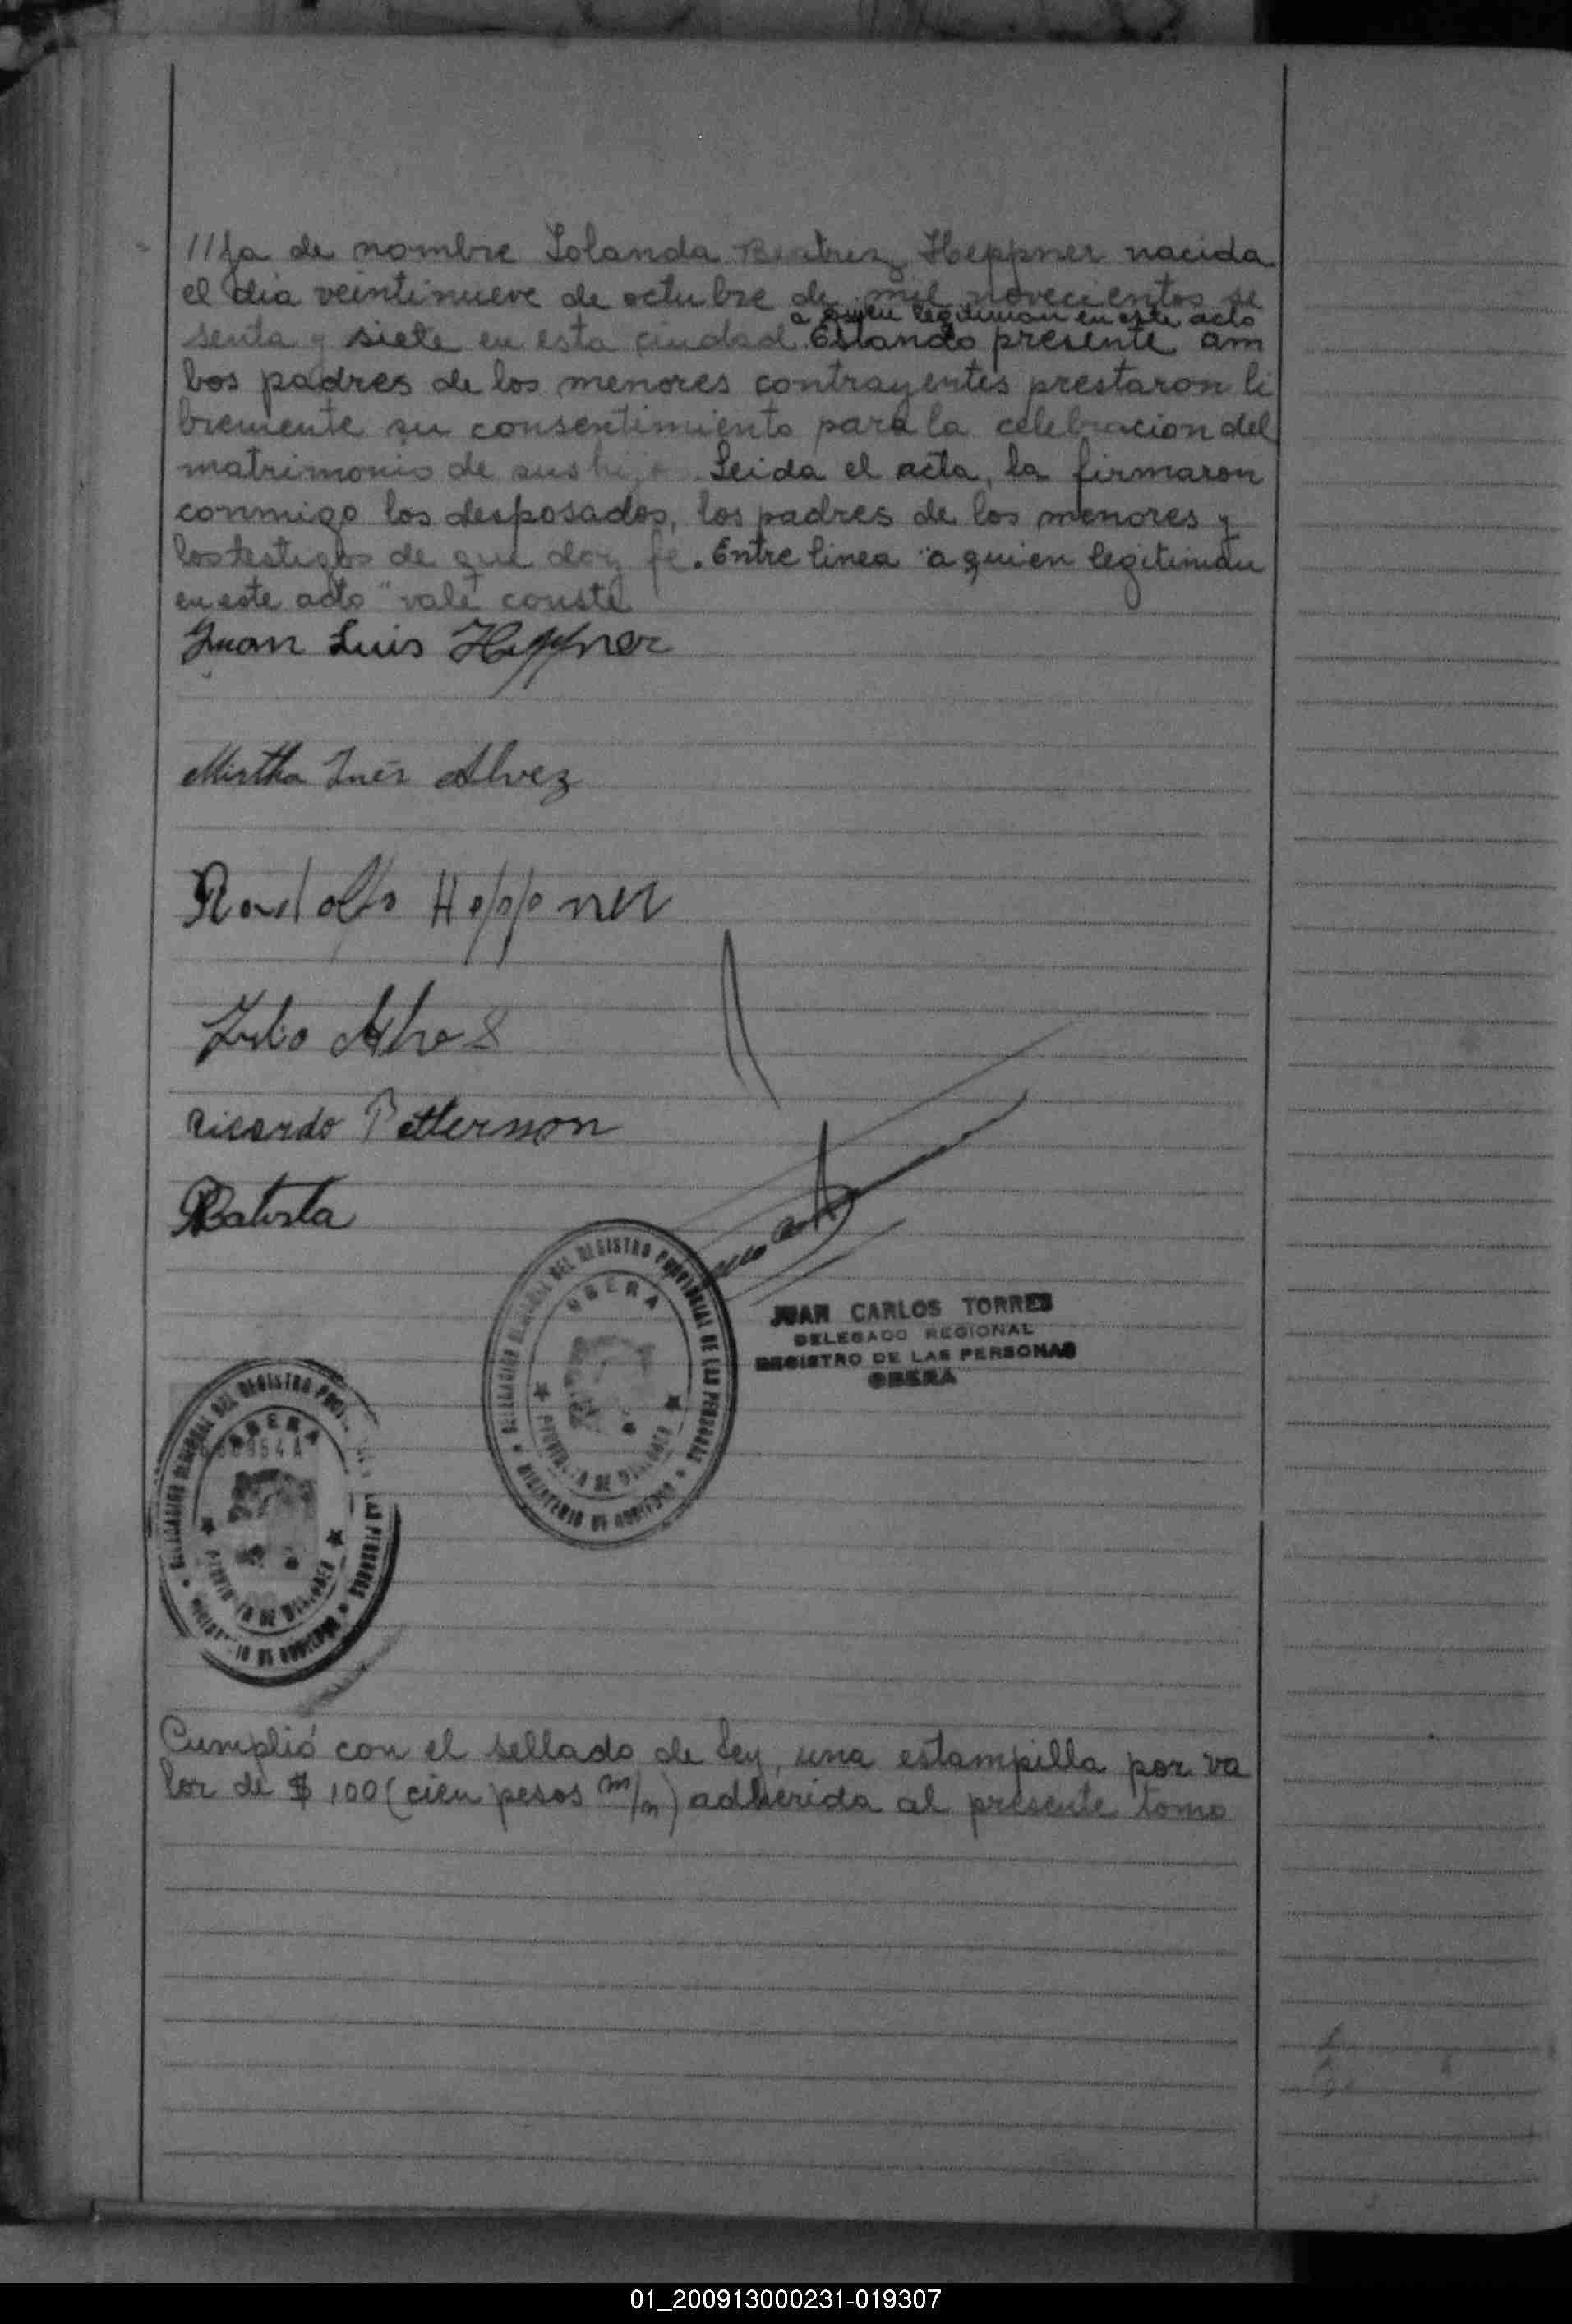 //ja de nombre Iolanda Beatriz Heppner nacida
el dia veintinueve de octubre de mil novecientos se
a quien legitiman en este acto
senta y siete en esta ciudad. Estando presente am
bos padres de los menores contrayentes prestaron li
bremente su consentimiento para la celebracion del
matrimonio de sus hijos. Leida el acta, la firmaron
conmigo los desposados, los padres de los menores y
los testigos de que doy fe. Entre linea "a quien legitiman
en este acto" vale conste
Juan Luis Heppner
Mirtha Inés Alvez
Rodolfo Heppner
Julio Alves
Ricardo Petterson
RBatista
DELEGACION REGIONAL DEL REGISTRO PROVINCIAL DE LAS PERSONAS
OBERA
PROVINCIA DE MISIONES
MINISTERIO DE GOBIERNO
JUAN CARLOS TORRES
DELEGADO REGIONAL
REGISTRO DE LAS PERSONAS
OBERA
DELEGACION REGIONAL DEL REGISTRO PROVINCIAL DE LAS PERSONAS
OBERA
PROVINCIA DE MISIONES
MINISTERIO DE GOBIERNO
Cumplió con el sellado de Ley, una estampilla por va
lor de $ 100 (cien pesos m/n) adherida al presente tomo
01_200913000231-019307